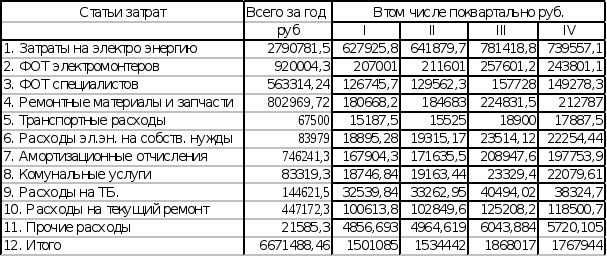 Статьи затрат Всего за год Втом числе поквартально руб.
руб I II III IV
1. Затраты на электро энергию 2790781,5 627925,8 641879,7 781418,8 739557,1
2. ФОТ электромонтеров 920004,3 207001 211601 257601,2 243801,1
3. ФОТ специалистов 563314,24 126745,7 129562,3 157728 149278,3
4. Ремонтные материалы и запчасти 802969,72 180668,2 184683 224831,5 212787
5. Транспортные расходы 67500 15187,5 15525 18900 17887,5
6. Расходы эл.эн. на собств. нужды 83979 18895,28 19315,17 23514,12 22254,44
7. Амортизационные отчисления 746241,3 167904,3 171635,5 208947,6 197753,9
8. Комунальные услуги 83319,3 18746,84 19163,44 23329,4 22079,61
9. Расходы на ТБ. 144621,5 32539,84 33262,95 40494,02 38324,7
10. Расходы на текущий ремонт 447172,3 100613,8 102849,6 125208,2 118500,7
11. Прочие расходы 21585,3 4856,693 4964,619 6043,884 5720,105
12. Итого 6671488,46 1501085 1534442 1868017 1767944